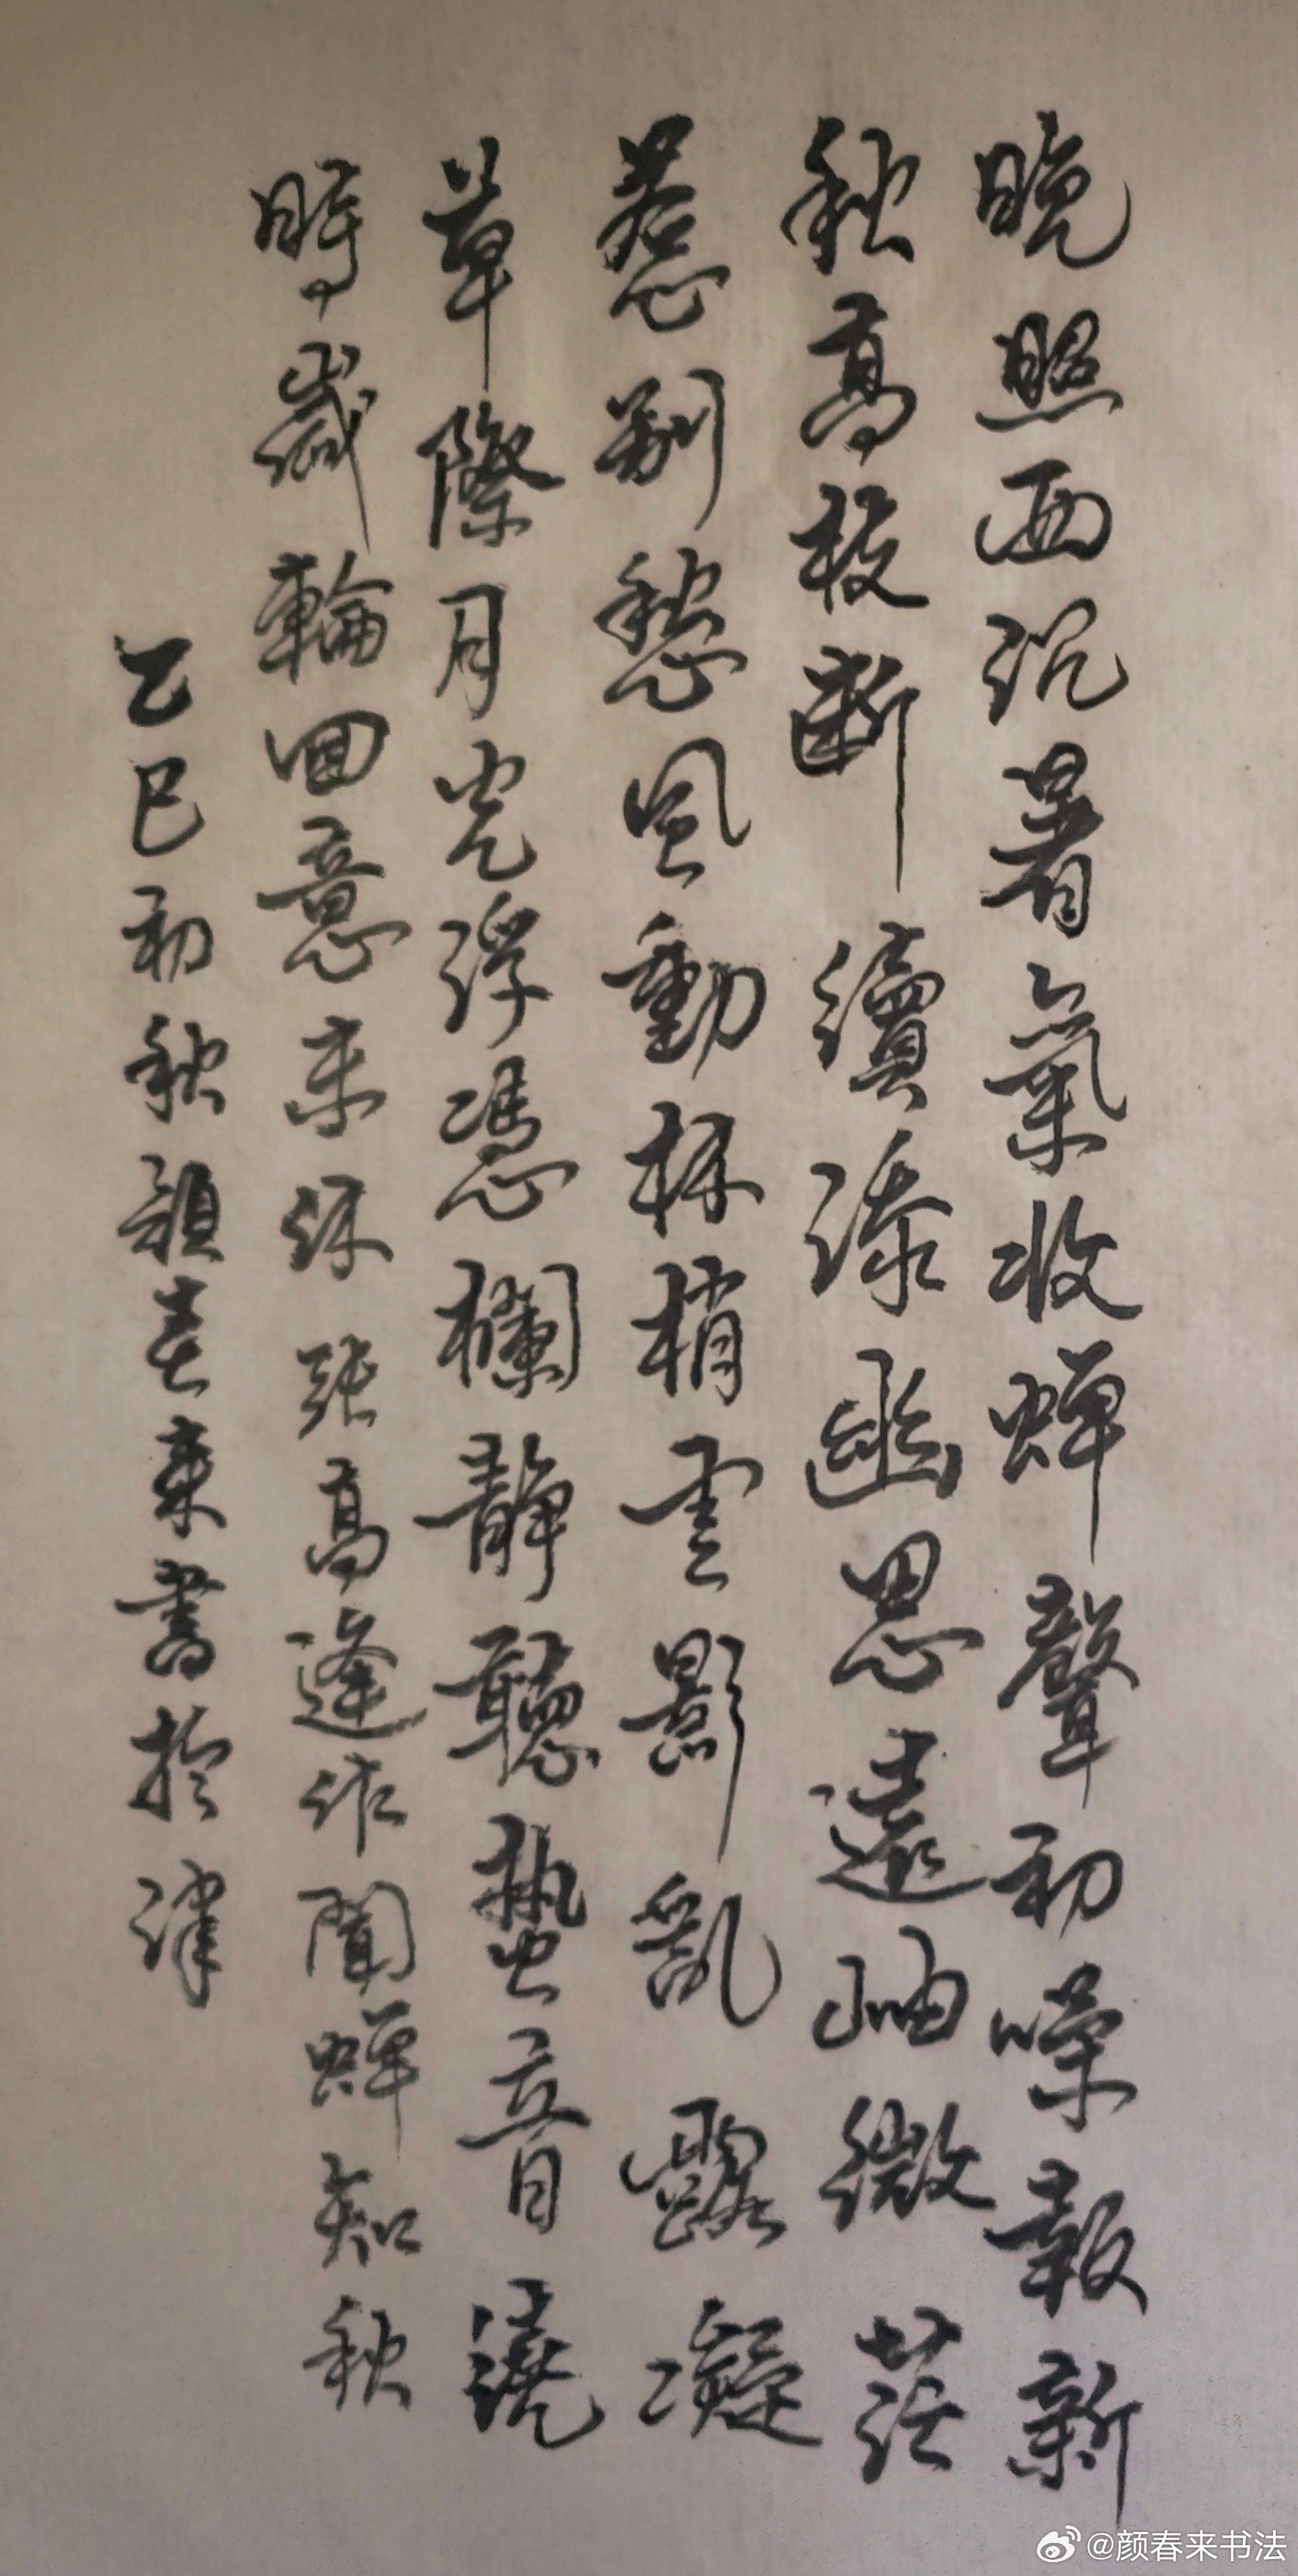 晚照西沉暑氣收蟬聲初噪報新
秋高枝斷續添幽思遠岫微茫
惹別愁風動林梢雲影亂露凝
草際月光浮憑欄靜聽蛩音繞
時歲輪回意未休張高逢作聞蟬知秋
乙巳初秋顏春來書於津
@颜春来书法